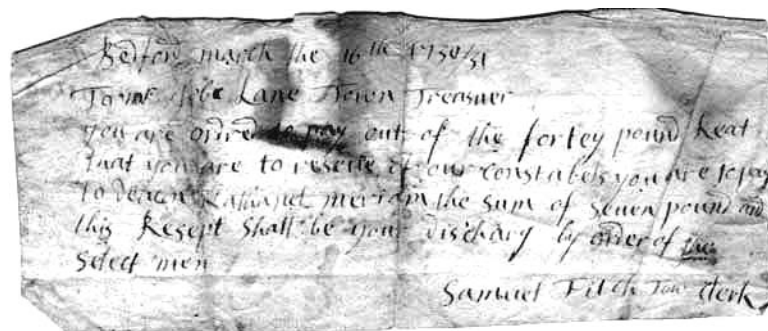 Bedford march the 16th 1730/31
To mr Jobe Lane Town Treasuer
you are ordred to pay out of the fortey pound Reat
that you are to reseive of our constabels you are to pay
to deacn Nathaniel meriam the sum of seven pound and
this Resept shall be your discharg by order of the
Select men
Samuel Fitch Tow Clerk